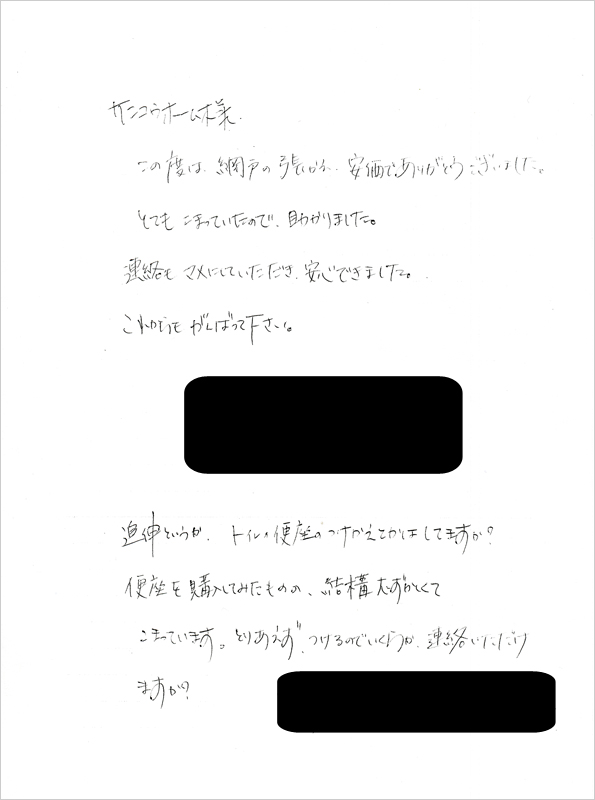 サンコウホーム様.
この度は、網戸の張りかえ、安価でありがとうございました。
とても こまっていたので、助かりました。
連絡も マメにしていただき、安心できました。
これからも がんばって下さい。
追伸というか、トイレの便座のつけかえとかはしてますか?
便座を購入してみたものの、結構むずかしくて
こまっています。とりあえず、つけるのでいくらか、連絡いただけ
ますか?